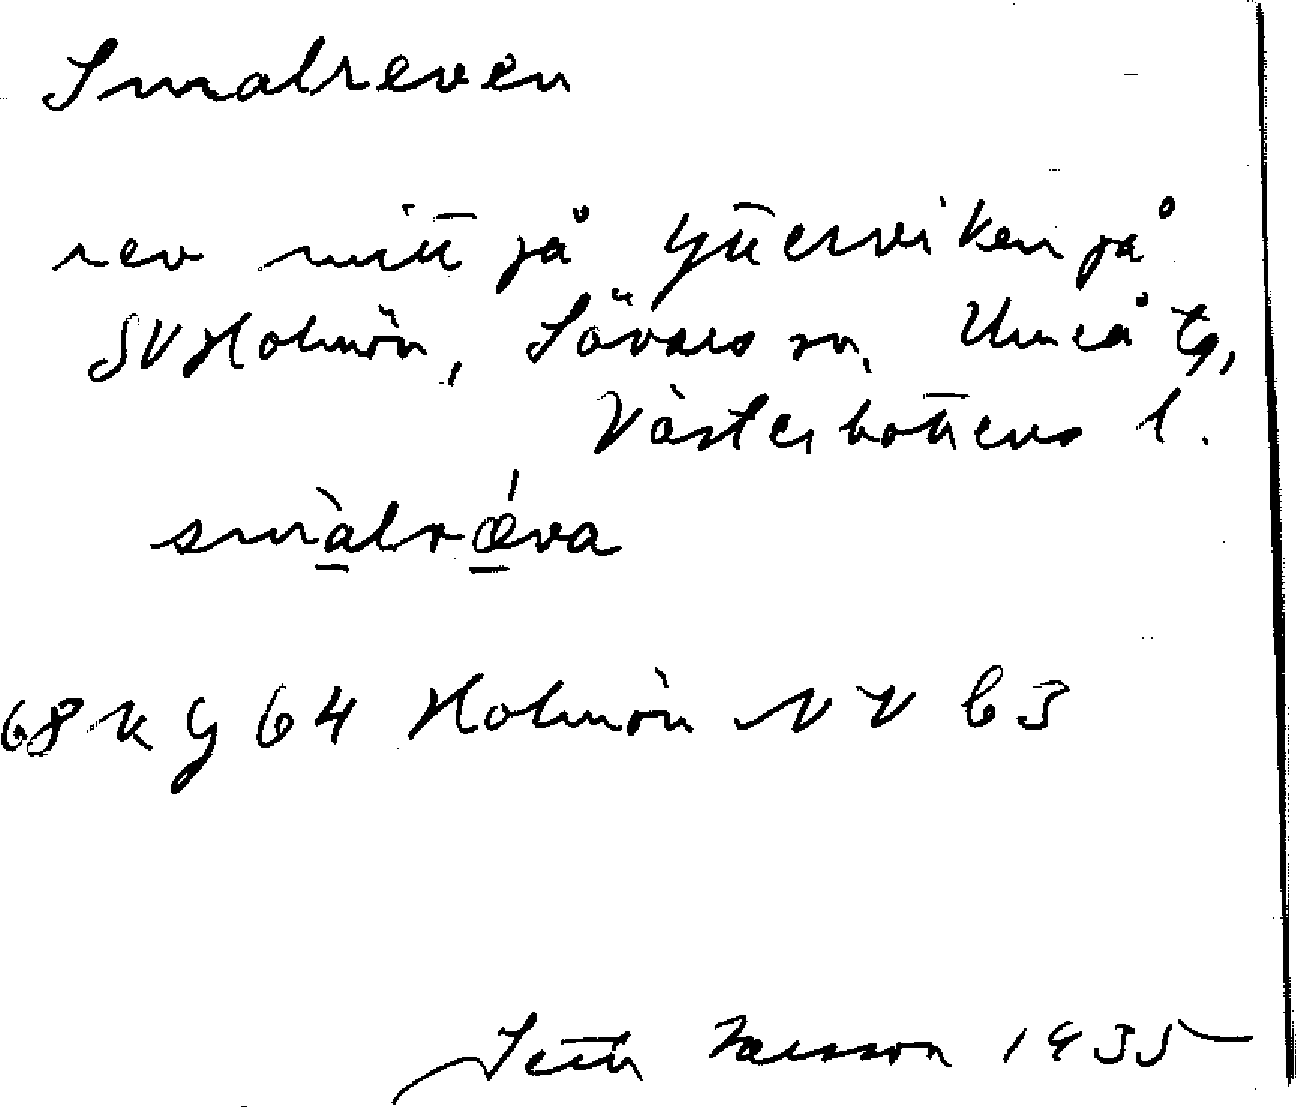 Smalreven
rev mitt på Ytterviken på
SV Holmön, Sävars sn, Umeå tg,
Västerbottens l.
smàlrǽva
68 K g 64 Holmön NV b3
Seth Larsson 1935